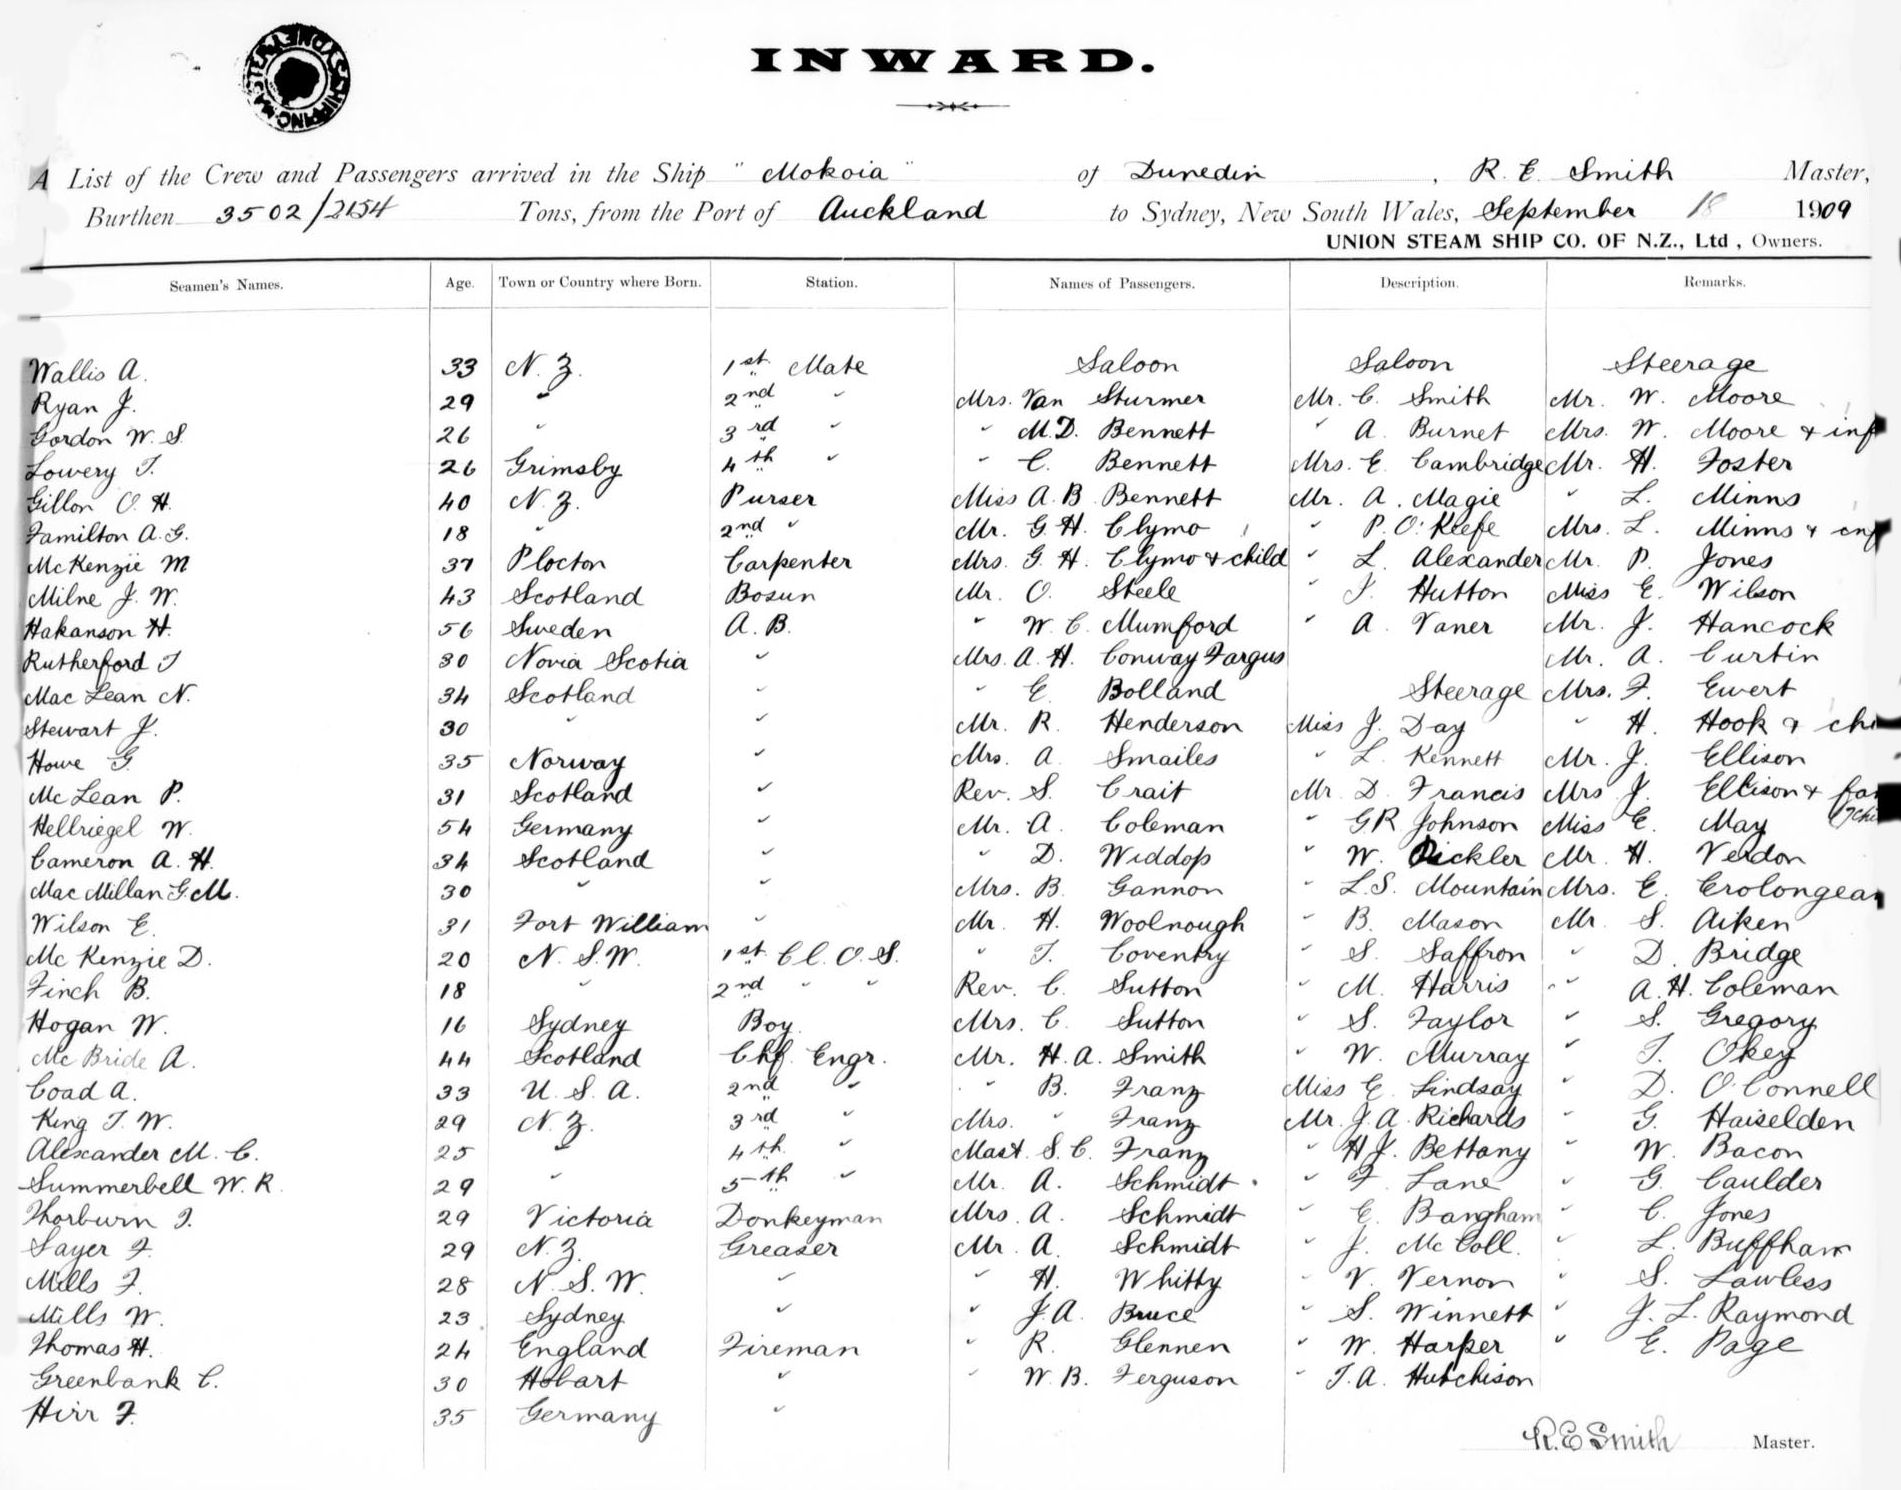 SYDNEY SHIPPING MASTER
INWARD.
A List of the Crew and Passengers arrived in the Ship "Mokoia" of Dunedin, R. E. Smith Master,
Burthen 3502/2154 Tons, from the Port of Auckland to Sydney, New South Wales, September 18 1909
UNION STEAM SHIP CO. OF N.Z., Ltd, Owners.
Seamen's Names. Age. Town or Country where Born. Station. Names of Passengers. Description. Remarks.
Wallis A. 33 N. Z. 1st Mate Saloon Saloon Steerage
Ryan J. 29 " 2nd " Mrs. Van Sturmer Mr. C. Smith Mr. W. Moore
Gordon W. S. 26 " 3rd " " M. D. Bennett " A. Burnet Mrs. W. Moore & inf
Lowery T. 26 Grimsby 4th " " C. Bennett Mrs. E. Cambridge Mr. H. Foster
Gillon O. H. 40 N. Z. Purser Miss A. B. Bennett Mr. A. Magie " L. Minns
Familton A. G. 18 " 2nd " Mr. G. H. Clymo " P. O'Keefe Mrs. L. Minns & inf
McKenzie M 37 Plocton Carpenter Mrs. G. H. Clymo & child " L. Alexander Mr. P. Jones
Milne J. W. 43 Scotland Bosun Mr. O. Steele " T. Hutton Miss E. Wilson
Hakanson H. 56 Sweden A. B. " W. C. Mumford " A. Vaner Mr. J. Hancock
Rutherford T 30 Novia Scotia " Mrs. A. H. Conway Fargus Mr. A. Curtin
Mac Lean N. 34 Scotland " " E. Bolland Steerage Mrs. F. Ewert
Stewart J. 30 " " Mr. R. Henderson Miss J. Day " H. Hook & chi
Howe G. 35 Norway " Mrs. A. Smailes " L. Kennett Mr. J. Ellison
Mc Lean P. 31 Scotland " Rev. S. Crait Mr. D. Francis Mrs J. Ellison & fam
Hellriegel W. 54 Germany " Mr. A. Coleman " G R Johnson Miss E. May (7 chi
Cameron A. H. 34 Scotland " " D. Widdop " W. Pickler Mr. H. Verdon
Mac Millan G. M. 30 " " Mrs. B. Gannon " L. S. Mountain Mrs. E. Crolongean
Wilson E. 31 Fort William " Mr. H. Woolnough " B. Mason Mr. S. Aiken
Mc Kenzie D. 20 N. S. W. 1st Cl. O. S. " T. Coventry " S. Saffron " D. Bridge
Finch B. 18 " 2nd " " Rev. C. Sutton " M. Harris " A. H. Coleman
Hogan W. 16 Sydney Boy. Mrs. C. Sutton " S. Taylor " S. Gregory
Mc Bride A. 44 Scotland Chf. Engr. Mr. H. A. Smith " W. Murray " T. Okey
Coad A. 33 U. S. A. 2nd " " B. Franz Miss E. Lindsay " D. O'Connell
King T. W. 29 N. Z. 3rd " Mrs. " Franz Mr. J. A. Richards " G. Haiselden
Alexander M. C. 25 " 4th " Mast. S. C. Franz " H J. Bettany " W. Bacon
Summerbell W. R. 29 " 5th " Mr. A. Schmidt " F. Lane " G. Caulder
Thorburn T. 29 Victoria Donkeyman Mrs. A. Schmidt " E. Bangham " C. Jones
Sayer F. 29 N. Z. Greaser Mr. A. Schmidt " J. Mc Coll. " L. Buffham
Mills F. 28 N. S. W. " " H. Whitty " V. Vernon " S. Lawless
Mills W. 23 Sydney " " J. A. Bruce " S. Winnett " J. L. Raymond
Thomas H. 24 England Fireman " R. Glennen " W. Harper " E. Page
Greenbank C. 30 Hobart " " W. B. Ferguson " T. A. Hutchison
Hirr F. 35 Germany "
R. E Smith Master.